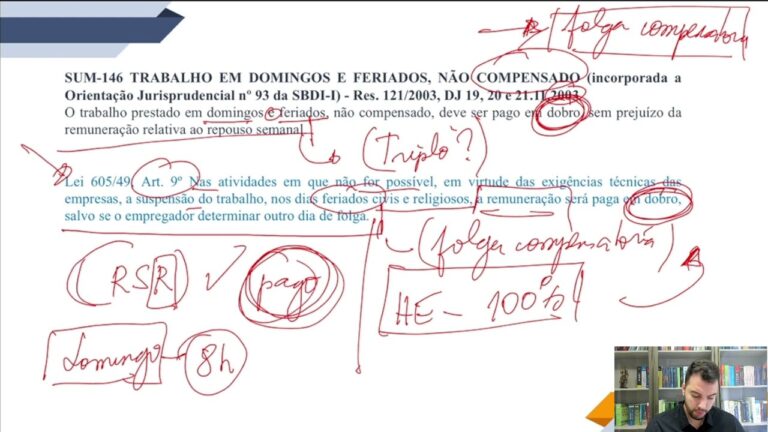 folga compensatória
SUM-146 TRABALHO EM DOMINGOS E FERIADOS, NÃO COMPENSADO (incorporada a
Orientação Jurisprudencial nº 93 da SBDI-I) - Res. 121/2003, DJ 19, 20 e 21.11.2003
O trabalho prestado em domingos e feriados, não compensado, deve ser pago em dobro, sem prejuízo da
remuneração relativa ao repouso semanal.
(Triplo?)
Lei 605/49, Art. 9º Nas atividades em que não for possível, em virtude das exigências técnicas das
empresas, a suspensão do trabalho, nos dias feriados civis e religiosos, a remuneração será paga em dobro,
salvo se o empregador determinar outro dia de folga.
(folga compensatória)
RSR pago
HE - 100%
Domingo 8h